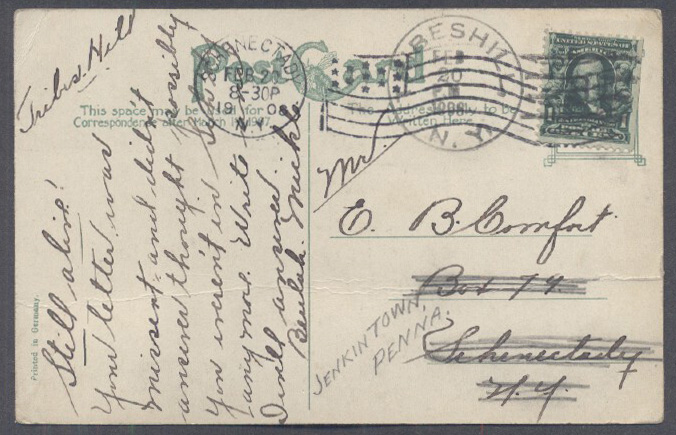 Post Card
This space may be used for
Correspondence after March 1st 1907.
The Address only to be
Written Here.
SCHENECTADY
FEB 2
8-30P
N.Y.
TRIBES HILL
FEB
20
PM
1908
N.Y.
Tribes Hill
Still alive!
Your letter was
missent and didn't
answer thought possibly
you weren't in
any more. Write
I will answer.
Beulah Mickle
Mr.
E. B. Comfort
Box 79
Schenectady
N.Y.
JENKINTOWN,
PENNA.
Printed in Germany.